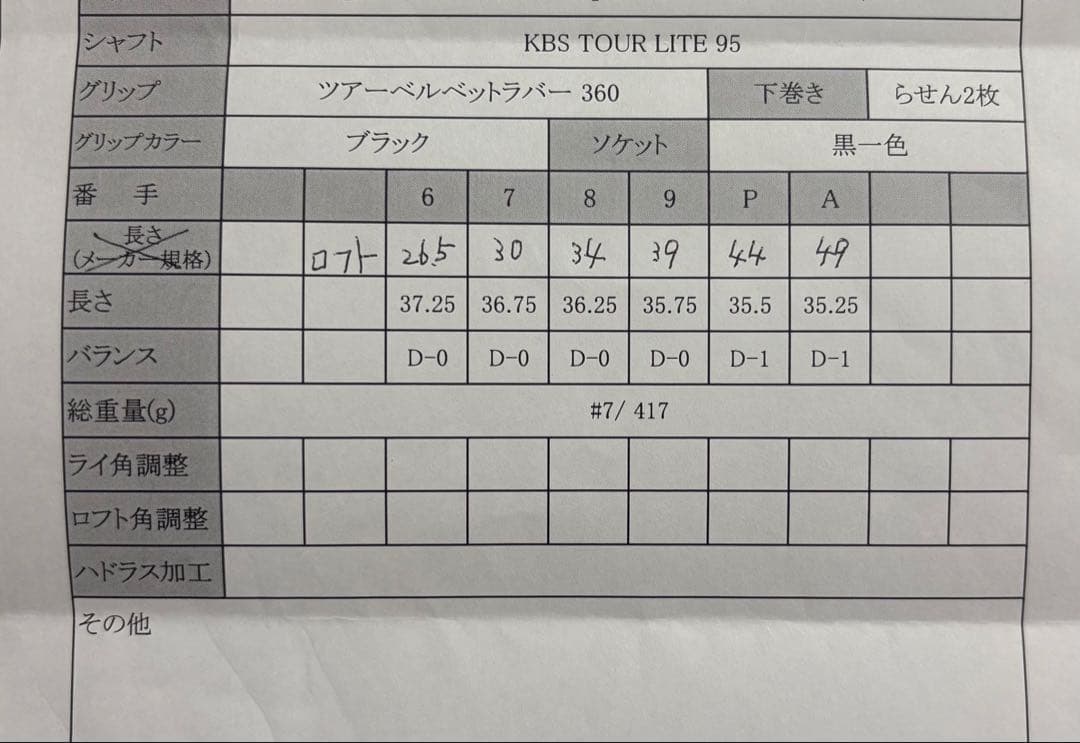 シャフト KBS TOUR LITE 95
グリップ ツアーベルベットラバー 360 下巻き らせん2枚
グリップカラー ブラック ソケット 黒一色
番 手 6 7 8 9 P A
長さ
(メーカー規格) ロフト 26.5 30 34 39 44 49
長さ 37.25 36.75 36.25 35.75 35.5 35.25
バランス D-0 D-0 D-0 D-0 D-1 D-1
総重量(g) #7/ 417
ライ角調整
ロフト角調整
ハドラス加工
その他